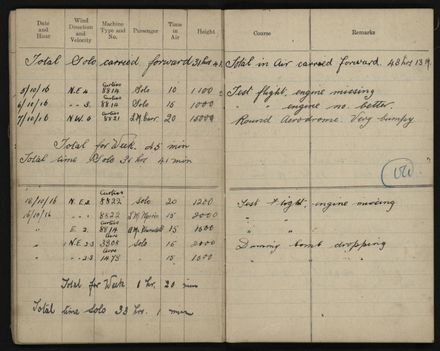 Date and Hour Wind Direction and Velocity Machine Type and No. Passenger Time in Air Height Course Remarks
Total Solo carried forward Total in Air carried forward. 48 hrs 13 M.
5/10/16 N.E 4 Curtiss 8814 Solo 10 1100 Test flight, engine missing
6/10/16 " " 3. Curtiss 8814 Solo 15 1000 " " engine no better.
7/10/16 N.W. 6 Curtiss 8821 20 1500 Round Aerodrome. Very bumpy
Total for Week. 45 min
Total time Solo 31 hrs 41 min
16/10/16 N.E.2 Curtiss 8822 Solo 20 1200 Test flight, engine missing
16/10/16 " " 8822 15 2000 "
" E. 2. Curtiss 8814 15 1500 "
" N.E. 2.3 Avro Solo 15 2000 Dummy bomb dropping
" " 2.3 15 1500 " "
Total for Week 1 hr. 20 min
Total time Solo 33 hrs. 1 min